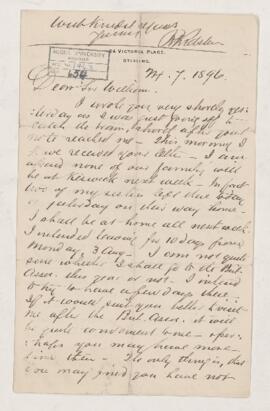 with kindest regards
Yours
24 VICTORIA PLACE,
STIRLING.
McGILL UNIVERSITY
634
7. 1896
Dear Sir William.
I wrote you very shortly yes-
terday as I was just going off to
catch the train, shortly after your
note reached me. This morning I
received your letter. I am
afraid none of our family will
be at Keswick next week. In fact
two of my sisters left there today
or yesterday on their way home.
I shall be at home all next week
I intended leaving for 10 days from
Monday, 3 Aug. I am not quite
sure whether I shall go to the Brit.
Assn. this year or not. I intend
to try to have a few days there.
If it would suit you better to visit
me after the Brit. Assn. it will
be quite convenient to me & per-
haps you may have more
time then. The only thing is, that
you may find you have not